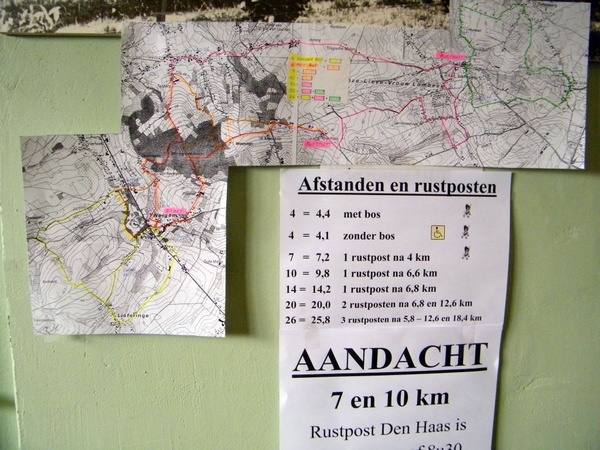 Onze-Lieve-Vrouw Lombeek
Neigem
Lieferinge
Afstanden en rustposten
4 = 4,4 met bos
4 = 4,1 zonder bos
7 = 7,2 1 rustpost na 4 km
10 = 9,8 1 rustpost na 6,6 km
14 = 14,2 1 rustpost na 6,8 km
20 = 20,0 2 rustposten na 6,8 en 12,6 km
26 = 25,8 3 rustposten na 5,8 – 12,6 en 18,4 km
AANDACHT
7 en 10 km
Rustpost Den Haas is